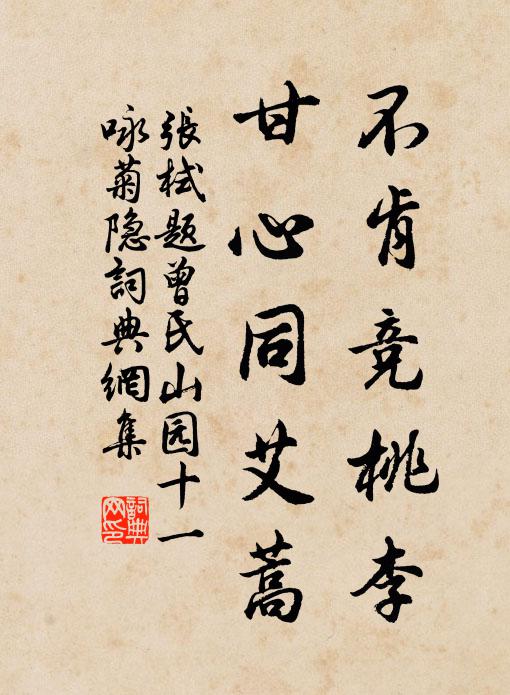 不肯竞桃李
甘心同艾蒿
張栻題曾氏山园十一
咏菊隐詞典網集
詞典网印